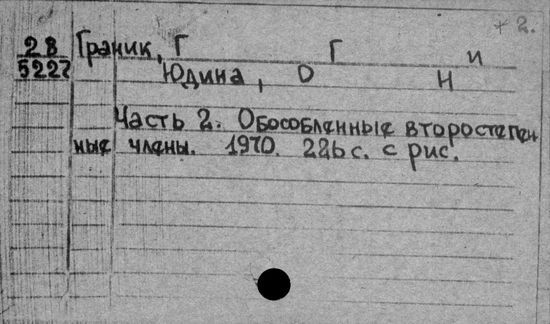 + 2.
28 Граник, Г Г и
5227 Юдина, О Н
Часть 2. Обособленные второстепен
ные члены. 1970. 226 с. с рис.